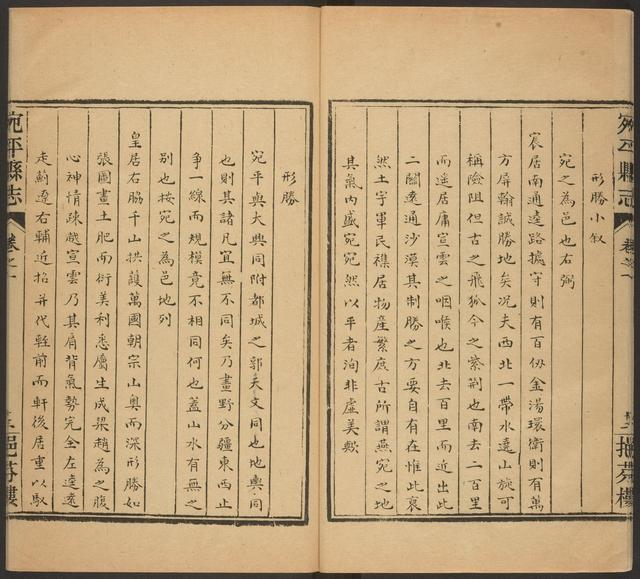 宛平縣志
卷之一
形勝小叙
宛之為邑也右弼
宸居南通逵路據守則有百仭金湯環衛則有萬
方屏翰誠勝地矣况夫西北一帶水遶山旋可
稱險阻但古之飛狐今之紫荆也南去二百里
而遥居庸宣雲之咽喉也北去百里而近出此
二關遠通沙漠其制勝之方要自有在惟此裒
然土宇軍民襍居物產繁庶古所謂燕宛之地
其氣内盛宛宛然以平者洵非虚美歟
形勝
宛平與大興同附都城之郭天文同也地輿同
也則其諸凡宜無不同矣乃畫野分疆東西止
争一線而規模竟不相同何也蓋山水有無之
别也按宛之為邑地列
皇居右脇千山拱䕶萬國朝宗山奥而深形勝如
張圖畫土肥而衍美利悉屬生成梁趙為之腹
心神情疎越宣雲乃其肩背氣勢完全左遶遠
走薊遼右輔近招并代輊前而軒後居重以馭
宛平縣志
卷之一